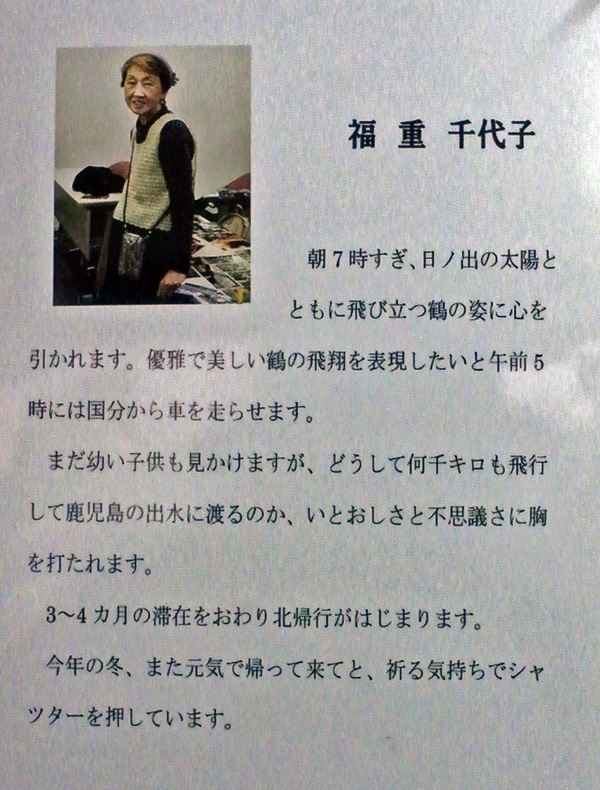 福 重 千代子
朝7時すぎ、日ノ出の太陽と
ともに飛び立つ鶴の姿に心を
引かれます。優雅で美しい鶴の飛翔を表現したいと午前5
時には国分から車を走らせます。
まだ幼い子供も見かけますが、どうして何千キロも飛行
して鹿児島の出水に渡るのか、いとおしさと不思議さに胸
を打たれます。
3〜4カ月の滞在をおわり北帰行がはじまります。
今年の冬、また元気で帰って来てと、祈る気持ちでシャ
ッターを押しています。